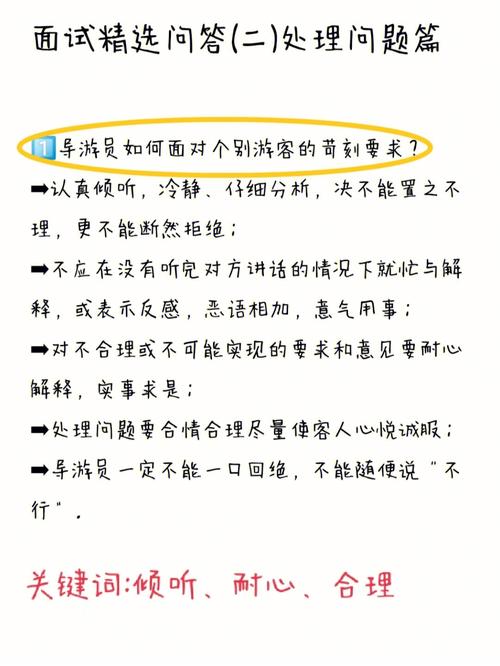 面试精选问答(二)处理问题篇
1️⃣导游员如何面对个别游客的苛刻要求？
➡认真倾听，冷静、仔细分析，决不能置之不
理，更不能断然拒绝；
➡不应在没有听完对方讲话的情况下就忙与解
释，或表示反感，恶语相加，意气用事；
➡对不合理或不可能实现的要求和意见要耐心
解释，实事求是；
➡处理问题要合情合理尽量使客人心悦诚服；
➡导游员一定不能一口回绝，不能随便说“不
行”.
关键词:倾听、耐心、合理